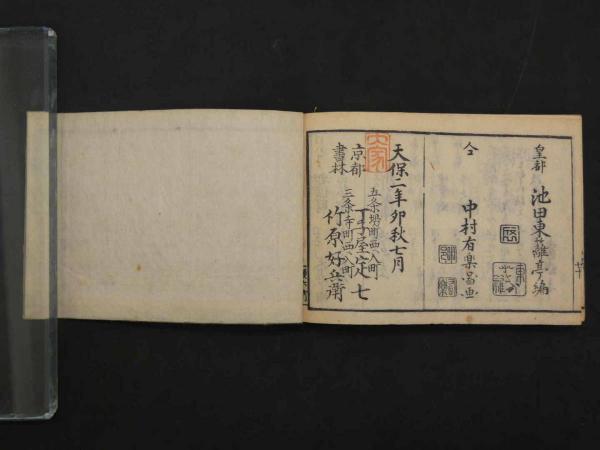 皇都 池田東籬亭編
仝 中村有楽画
天保二年卯秋七月
京都書林
五条堺町西入町
丁子屋定七
三条寺町西入町
竹原好兵衛